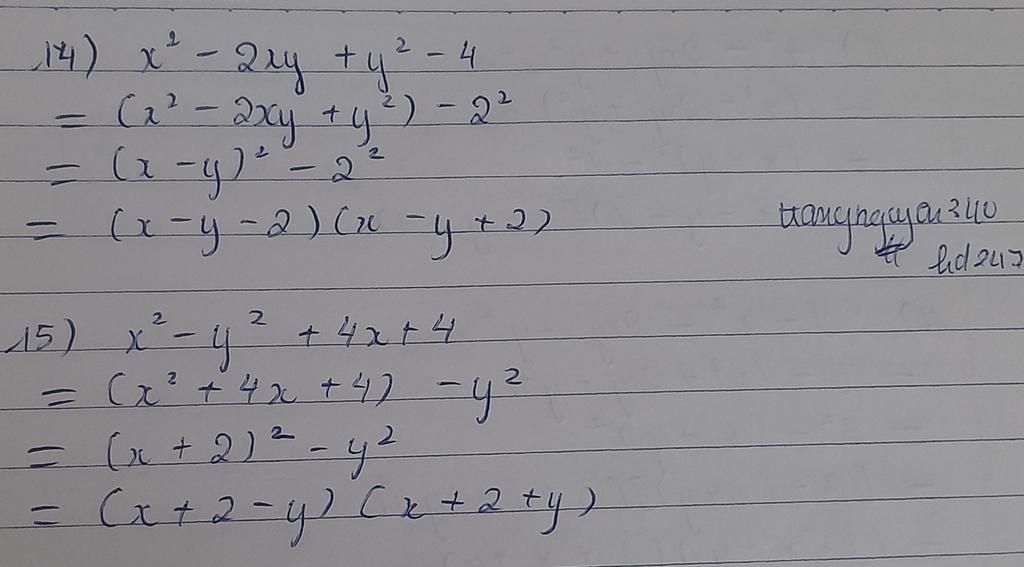 14) x² - 2xy + y² - 4
= (x² - 2xy + y²) - 2²
= (x - y)² - 2²
= (x - y - 2) (x - y + 2)
hd247
15) x² - y² + 4x + 4
= (x² + 4x + 4) - y²
= (x + 2)² - y²
= (x + 2 - y) (x + 2 + y)